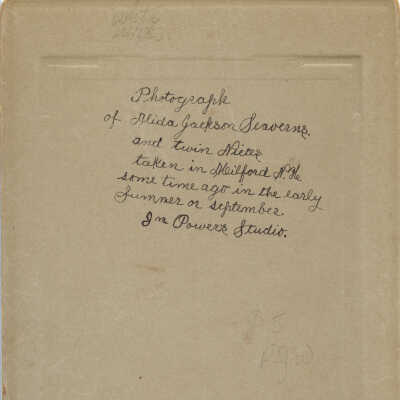 Photograph
of Alida Jackson Seaverns,
and twin Nieces
taken in Milford N.H.
some time ago in the early
Summer or september
In Powers Studio.